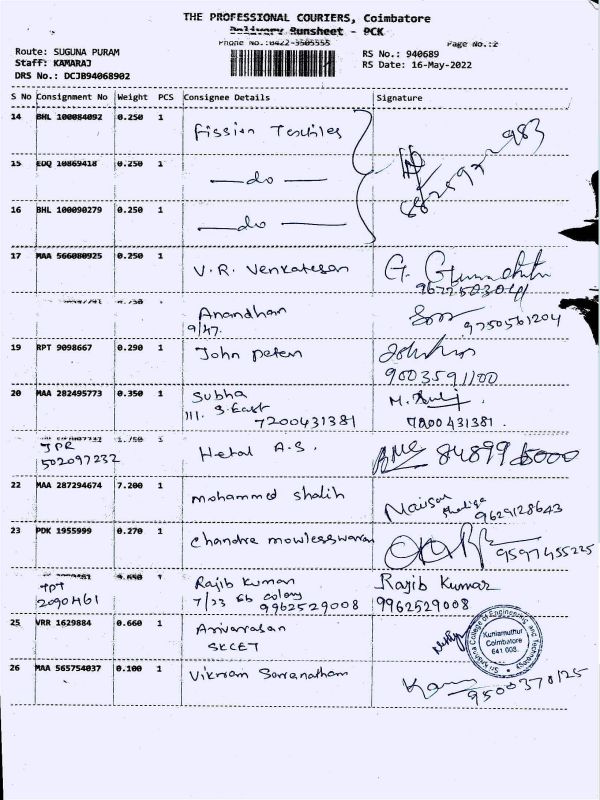 THE PROFESSIONAL COURIERS, Coimbatore
Delivery Runsheet - PCK
Phone No.:0422-3505555 Page No.:2
Route: SUGUNA PURAM RS No.: 940689
Staff: KAMARAJ RS Date: 16-May-2022
DRS No.: DCJB94068902
S No Consignment No Weight PCS Consignee Details Signature
14 BHL 100084092 0.250 1 Fission Textiles
15 EDQ 10869418 0.250 1 do
16 BHL 100090279 0.250 1 do
17 MAA 566080925 0.250 1 V.R. Venkatesan
Anandhan
9/47. 9750561204
19 RPT 9098667 0.290 1 John peter
9003591100
20 MAA 282495773 0.350 1 Subha
111. S. East
7200431381 7200431381.
1.750 1 Hetal A.S.
JPR
502097232
22 MAA 287294674 7.200 1 mohammed shalih
9629128643
23 PDK 1955999 0.270 1 Chandra mowleeswaran
9597455225
TPT Rajib Kumar Rajib Kumar
2090461 7/23 Eb colony
9962529008 9962529008
25 VRR 1629884 0.660 1 Arivarasan
SKCET
Sri Krishna College of Engineering and Technology
Kuniamuthur
Coimbatore
641 008.
26 MAA 565754037 0.100 1 Vikram Sorranatham